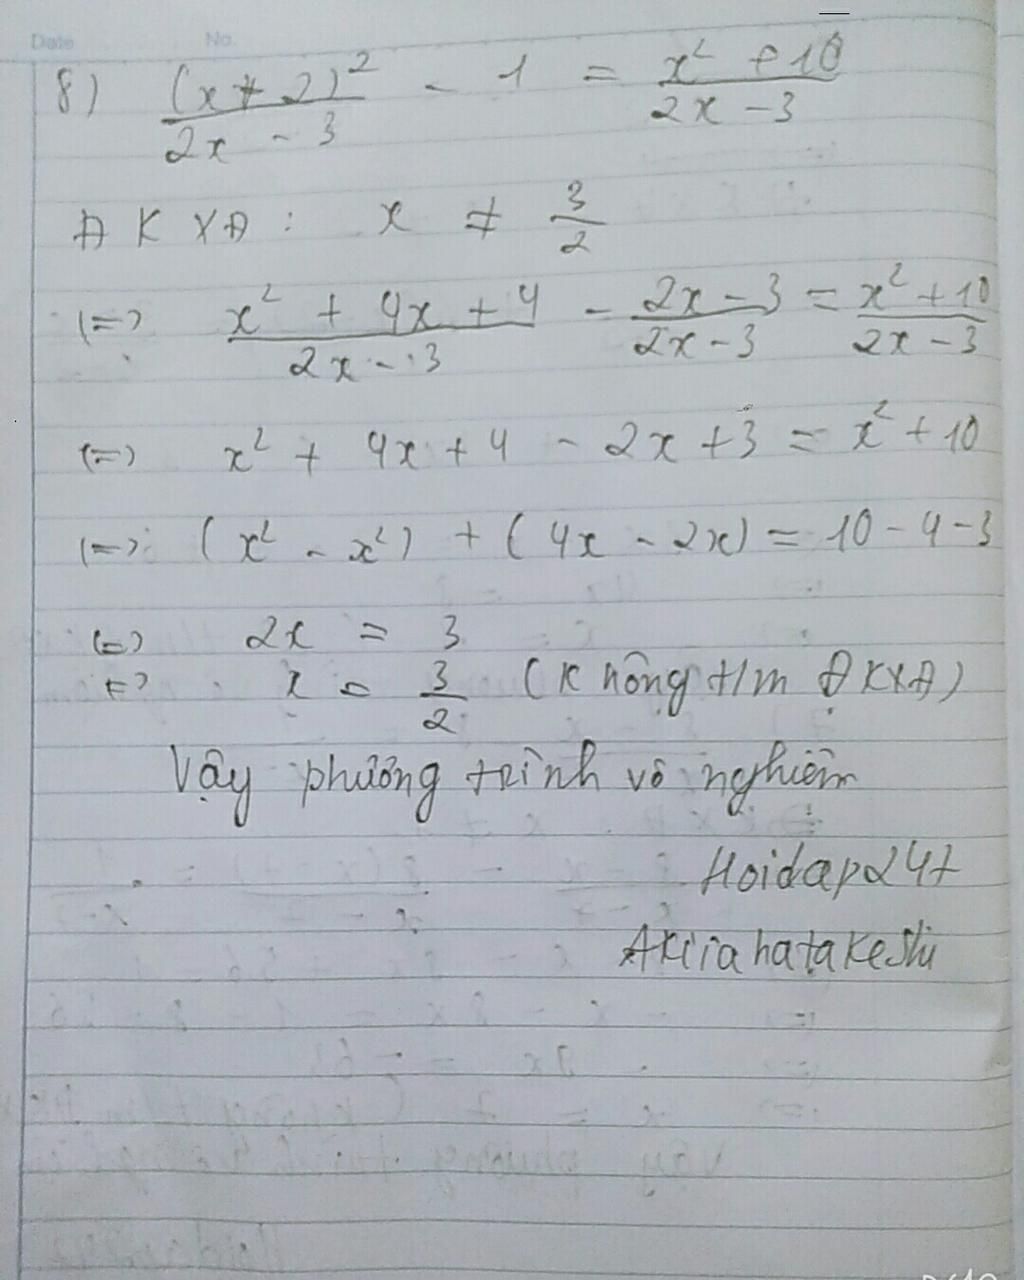 Date No.
8) (x + 2)² / 2x - 3 - 1 = x² + 10 / 2x - 3
ĐKXĐ : x ≠ 3/2
(=) x² + 4x + 4 / 2x - 3 - 2x - 3 / 2x - 3 = x² + 10 / 2x - 3
(=) x² + 4x + 4 - 2x + 3 = x² + 10
(=) (x² - x²) + (4x - 2x) = 10 - 4 - 3
(=) 2x = 3
(=) x = 3/2 (Không t/m ĐKXĐ)
Vậy phương trình vô nghiệm
Hoidap247